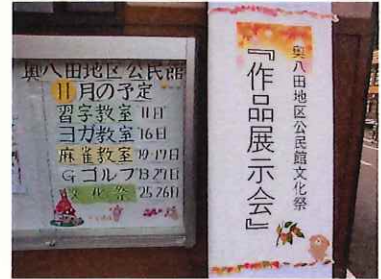 奥八田地区公民館
11月の予定
習字教室 11日
ヨガ教室 16日
麻雀教室 10・17日
Gゴルフ 13・27日
文化祭 25 26日
奥八田地区公民館文化祭
『作品展示会』